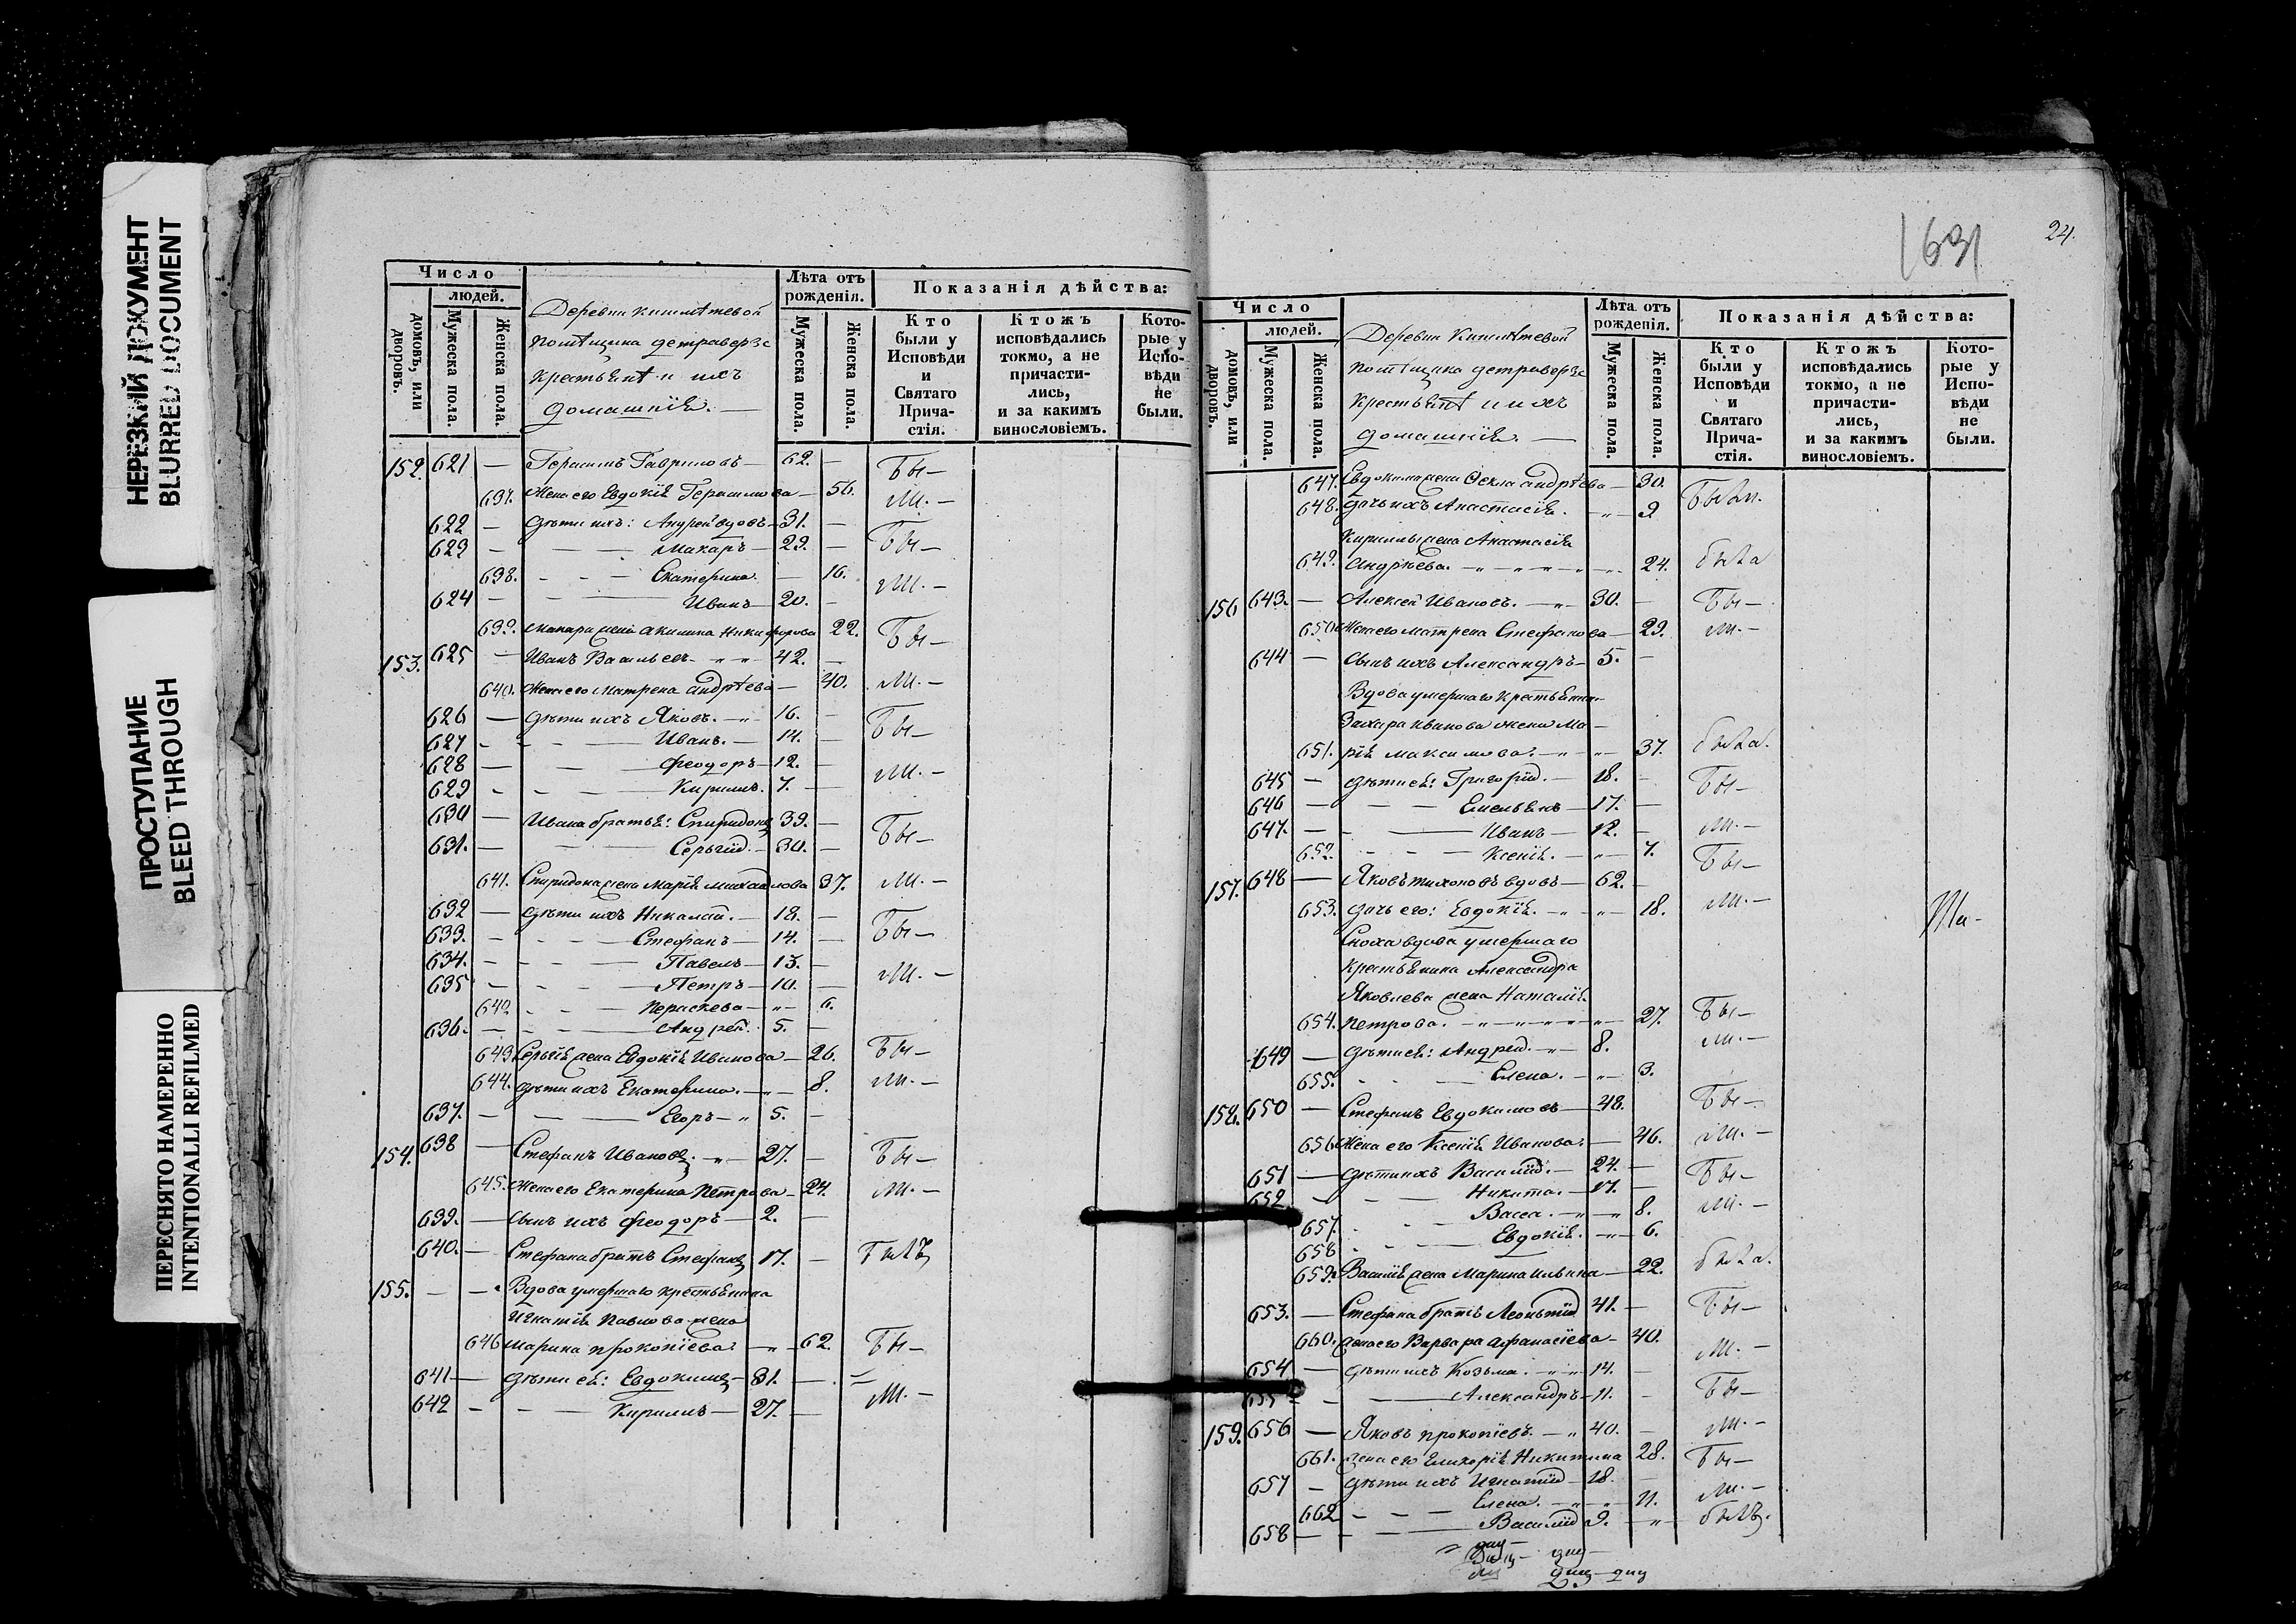 НЕРЕЗКИЙ ДОКУМЕНТ
BLURRED DOCUMENT
ПРОСТУПАНИЕ
BLEED THROUGH
ПЕРЕСНЯТО НАМЕРЕННО
INTENTIONALLI REFILMED
Число
людей.
домовъ, или дворовъ.
Мужеска пола.
Женска пола.
Деревни
помѣщика
крестьянѣ и ихъ
домашнія. —
Лѣта отъ рожденія.
Мужеска пола.
Женска пола.
Показанія дѣйства:
Кто были у Исповѣди и Святаго Прича-стія.
Ктожъ исповѣдались токмо, а не причасти-лись, и за какимъ винословіемъ.
Кото-рые у Испо-вѣди не были.
152. 621 — Герасимъ Гавриловъ — 62. — Бы—
637. Жена его Евдокія Герасимова — 56. ли. —
622 — дѣти ихъ: Андрей вдовъ — 31. —
623 — — Макаръ — 29. — Бы—
638. — Екатерина — 16.
624 — — Иванъ — 20. — ли. —
639. Макара жена Акилина Никифорова 22.
153. 625 — Иванъ Васильевъ — 42. — Бы—
640. Жена его Матрена Андрѣева — 40. ли. —
626 — дѣти ихъ Яковъ. — 16. —
627 — — Иванъ. — 14. — Бы—
628 — — Феодоръ — 12. —
629 — — Кирилъ. 7. — ли. —
630 — Ивана братья: Спиридонъ 39. —
631. — — Сергій — 30. — Бы—
641. Спиридона жена Марія Михайлова 37. ли. —
632 — дѣти ихъ Николай. — 18. —
633. — — Стефанъ — 14. — Бы—
634. — — Павелъ — 13. —
635 — — Петръ — 10. — ли. —
642 — Параскева — 6.
636. — — Андрей. 5. —
643 Сергія жена Евдокія Иванова — 26. Бы—
644. дѣти ихъ Екатерина. — 8. ли. —
637. — — Егоръ — 5. —
154. 638 — Стефанъ Ивановъ. — 27. — Бы—
645. Жена его Екатерина Петрова — 24. ли. —
639. — сынъ ихъ Феодоръ — 2. —
640. — Стефана братъ Стефанъ 17. — Былъ
155. — — Вдова умершаго крестьянина
Игнатія Павлова жена
646 Марина Прокопіева. — 62. Бы—
641 — дѣти ея: Евдокимъ — 31. —
642 — — Кирилъ — 27. — ли. —
1631
24.
Число
людей.
домовъ, или дворовъ.
Мужеска пола.
Женска пола.
Деревни
помѣщика
крестьянѣ и ихъ
домашнія. —
Лѣта отъ рожденія.
Мужеска пола.
Женска пола.
Показанія дѣйства:
Кто были у Исповѣди и Святаго Прича-стія.
Ктожъ исповѣдались токмо, а не причасти-лись, и за какимъ винословіемъ.
Кото-рые у Испо-вѣди не были.
647. Евдокима жена Фекла Андрѣева — 30.
648. дочь ихъ Анастасія. — 2 Были.
Кирилы жена Анастасія
649. Андрѣева. — 24. была
156 643. — Алексѣй Ивановъ. — 30. — Бы—
650 Жена его Матрена Стефанова — 29. ли. —
644 — сынъ ихъ Александръ — 5. —
Вдова умершаго крестьянина
Захара Иванова жена Ма-
651. рія Максимова. — 37. была.
645 — дѣти ея: Григорій. — 18. — Бы—
646 — — Емельянъ — 17. —
647. — — Иванъ — 12. — ли. —
652. — Ксенія. — 7. Бы—
157. 648 — Яковъ Тихоновъ вдовъ — 62. —
653. дочь его: Евдокія. — 18. ли. —
Сноха вдова умершаго
крестьянина Александра
Яковлева жена Наталія
654. Петрова. — 27. Бы—
649 — дѣти ея: Андрей. — 8. ли. —
655. — Елена. — 3.
158. 650 — Стефанъ Евдокимовъ — 48. Бы—
656 Жена его Ксенія Иванова. — 46. ли. —
651 — дѣти ихъ Василій. — 24. — Бы—
652 — — Никита. — 17. —
657. — Васса. — 8. ли. —
658 — Евдокія. — 6.
659. Василія жена Марина Ильина — 22. была.
653. — Стефана братъ Леонтій 41. — Бы—
660. жена его Варвара Афанасіева — 40.
654 — дѣти ихъ Козьма. — 14. — ли. —
655 — — Александръ — 11. — Бы—
159. 656 — Яковъ Прокопіевъ. — 40. — ли. —
661. жена его Гликерія Никитина 28. Бы—
657 — дѣти ихъ Игнатій — 18. —
662 — Елена. — 11. ли. —
658 — — Василій 9. — былъ.